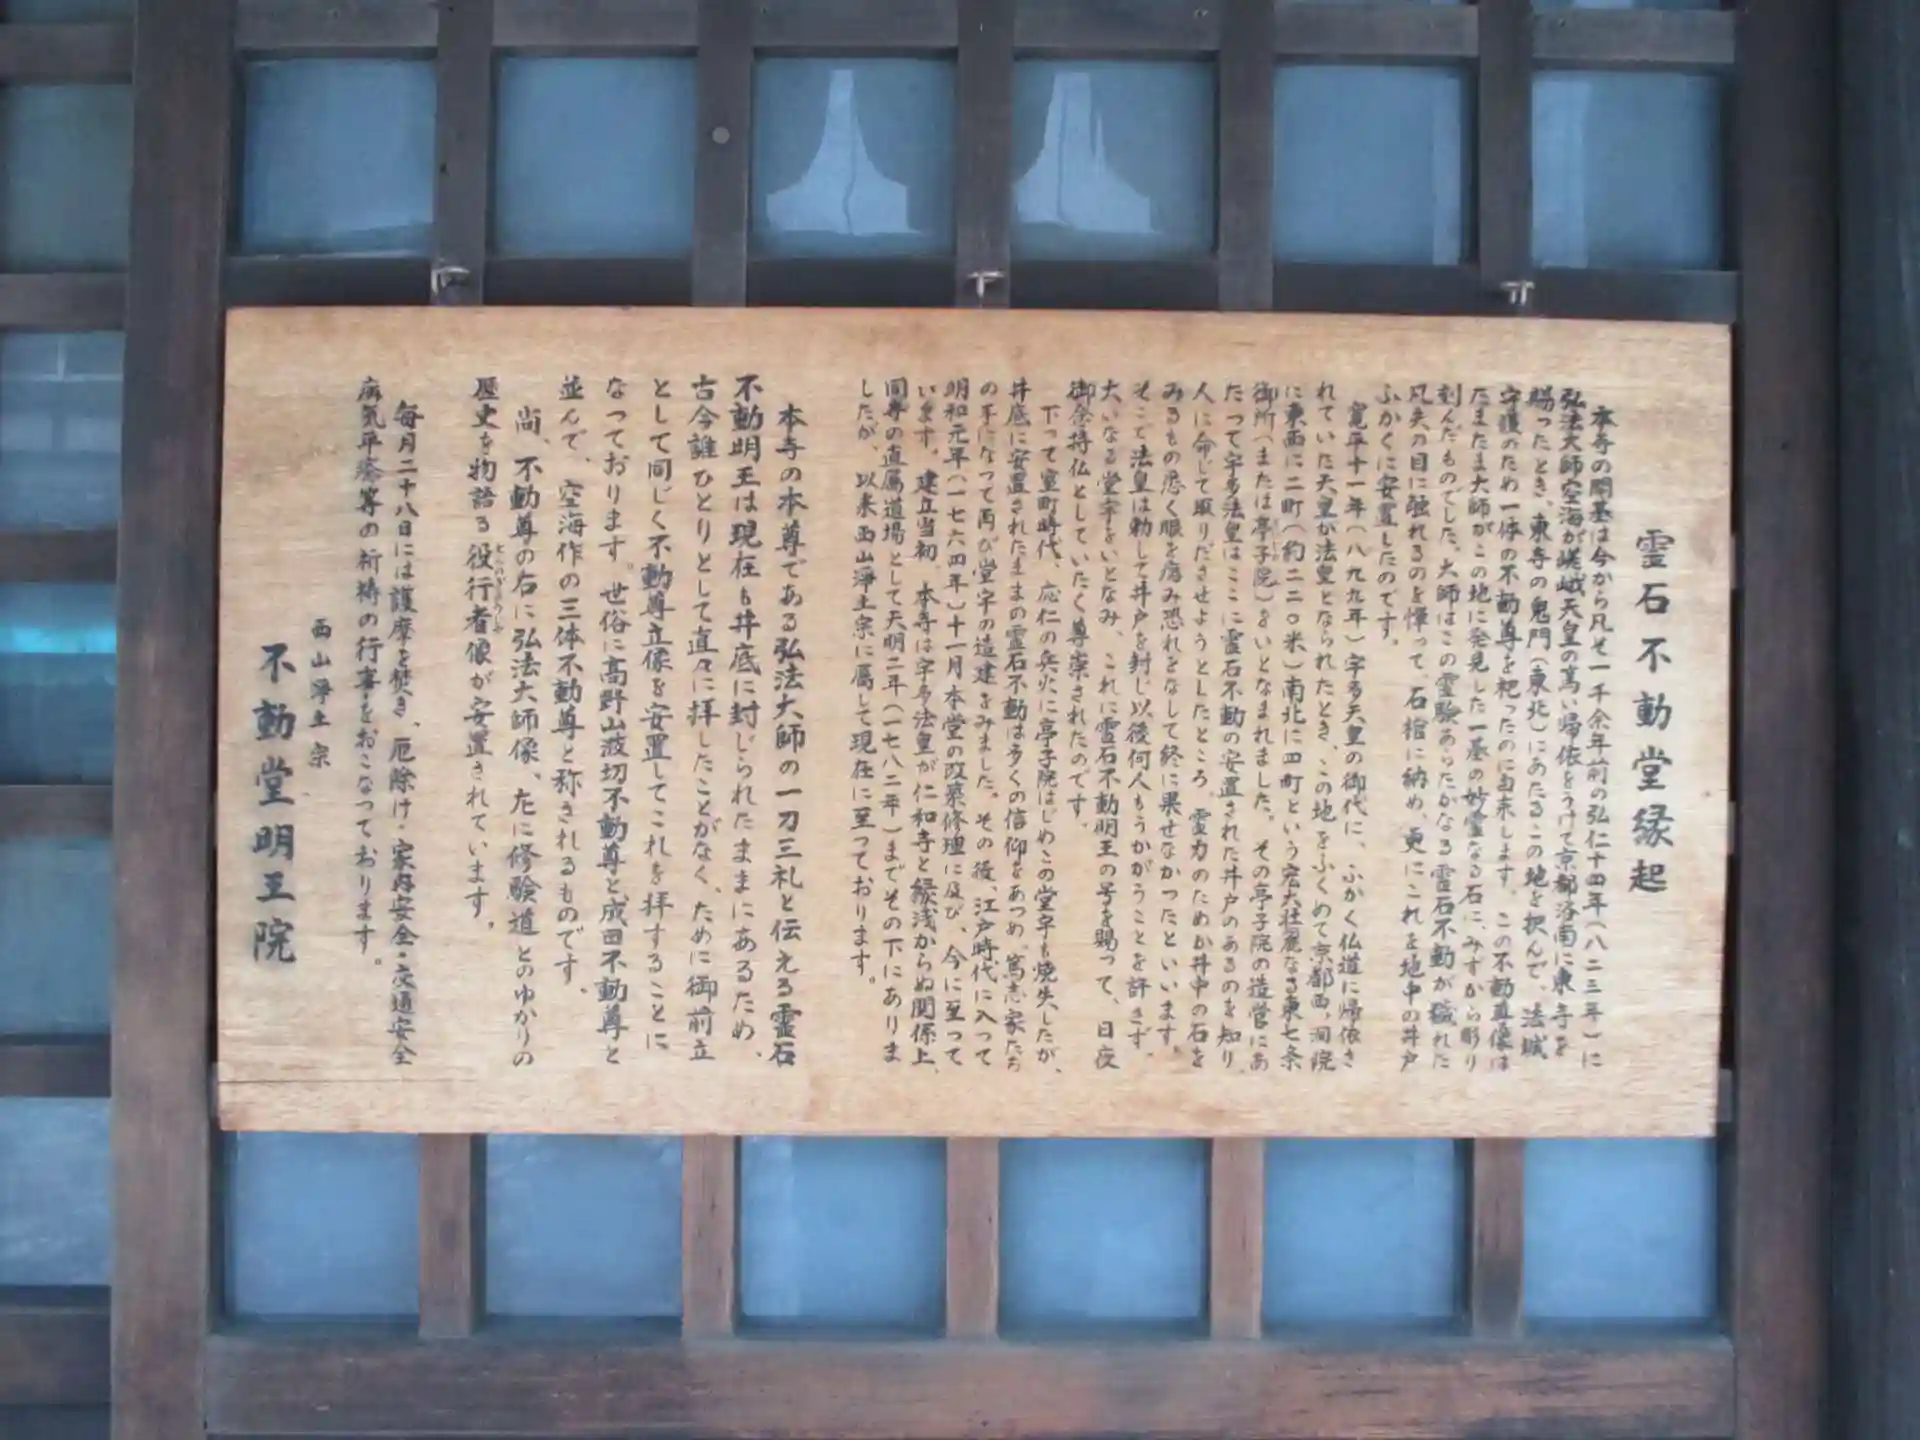 霊石不動堂縁起
本寺の開基は今から凡そ一千余年前の弘仁十四年(八二三年)に
弘法大師空海が嵯峨天皇の高い帰依をうけて京都洛南に東寺を
賜ったとき、東寺の鬼門(東北)にあたるこの地を択んで、法城
守護のため一体の不動尊を祀ったのに由来します。この不動尊像は
たまたま大師がこの地に発見した一基の妙霊なる石に、みずから彫り
刻んだものでした。大師はこの霊験あらたかなる霊石不動が穢れた
凡夫の目に触れるのを憚って、石棺に納め、更にこれを地中の井戸
ふかくに安置したのです。
寛平十一年(八九九年)宇多天皇の御代に、ふかく仏道に帰依さ
れていた天皇が法皇となられたとき、この地をふくめて京都西、洞院
に東西に二町(約二二〇米)南北に四町という宏大壮麗なる東七条
御所(または亭子院)をいとなまれました。その亭子院の造営にあ
たって宇多法皇はここに霊石不動の安置された井戸のあるのを知り、
人に命じて取りださせようとしたところ。霊力のためか井中の石を
みるもの悉く眼を痛み恐れをなして終に果せなかったといいます。
そこで法皇は勅して井戸を封じ以後何人もうかがうことを許さず。
大いなる堂宇をいとなみ、これに霊石不動明王の号を賜って、日夜
御念持仏としていたく尊崇されたのです。
下って室町時代、応仁の兵火に亭子院はじめこの堂宇も焼失したが、
井底に安置されたままの霊石不動は多くの信仰をあつめ、篤志家たち
の手になって再び堂宇の造建をみました。その後、江戸時代に入って
明和元年(一七六四年)十一月本堂の改築修理に及び、今に至って
います。建立当初、本寺は宇多法皇が仁和寺と縁浅からぬ関係上、
同寺の直属道場として天明二年(一七八二年)までその下にありま
したが、以来西山浄土宗に属して現在に至っております。
本寺の本尊である弘法大師の一刀三礼と伝える霊石
不動明王は現在も井底に封じられたままにあるため、
古今誰ひとりとして直々に拝したことがなく、ために御前立
として同じく不動尊立像を安置してこれを拝することに
なっております。世俗に高野山波切不動尊と成田不動尊と
並んで、空海作の三体不動尊と称されるものです。
尚、不動尊の右に弘法大師像、左に修験道とのゆかりの
歴史を物語る役行者像が安置されています。
えんのぎょうじゃ
毎月二十八日には護摩を焚き、厄除け・家内安全・交通安全
病気平癒等の祈祷の行事をおこなっております。
西山浄土宗
不動堂明王院